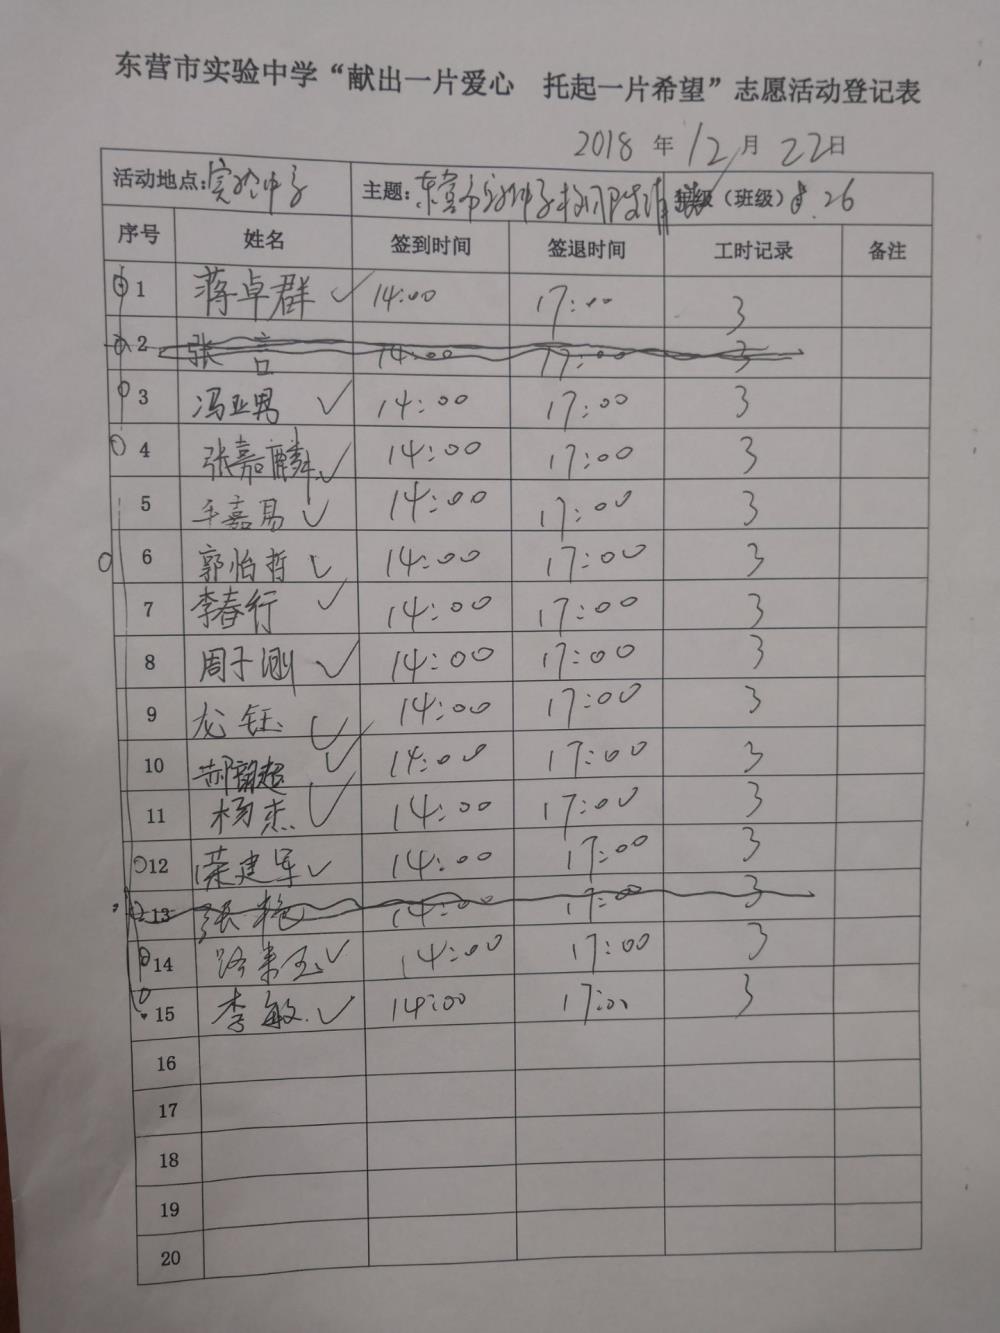 东营市实验中学“献出一片爱心 托起一片希望”志愿活动登记表
2018 年 12 月 22 日
活动地点:实验中学 主题:东营市实验中学校门口 级(班级) 8.26
序号 姓名 签到时间 签退时间 工时记录 备注
1 蒋卓群 ✓ 14:00 17:00 3
2 张言 14:00 17:00 3
3 冯亚男 ✓ 14:00 17:00 3
4 张嘉麟 ✓ 14:00 17:00 3
5 王嘉易 ✓ 14:00 17:00 3
6 郭怡哲 ✓ 14:00 17:00 3
7 李春行 ✓ 14:00 17:00 3
8 周子渊 ✓ 14:00 17:00 3
9 龙钰 ✓ 14:00 17:00 3
10 郝韶超 ✓ 14:00 17:00 3
11 杨杰 ✓ 14:00 17:00 3
12 荣建军 ✓ 14:00 17:00 3
13 张艳 14:00 17:00 3
14 路来玉 ✓ 14:00 17:00 3
15 李敏 ✓ 14:00 17:00 3
16
17
18
19
20